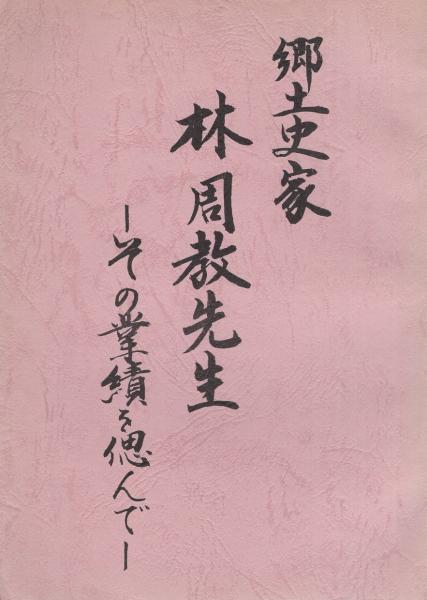 郷土史家
林周教先生
ーその業績を偲んでー